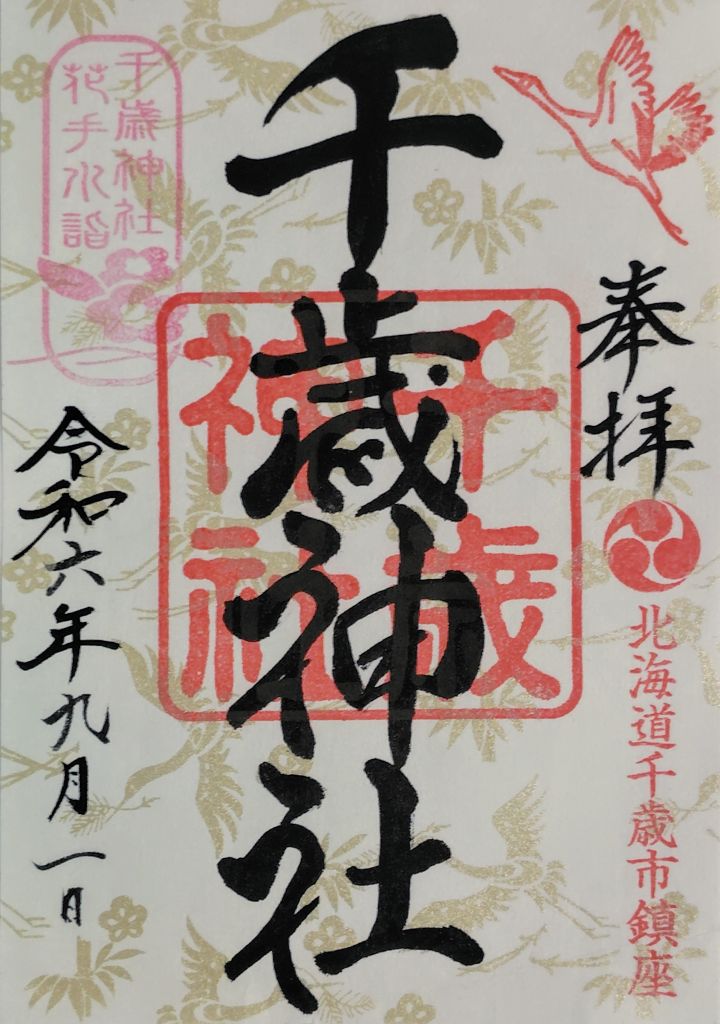 奉拝
北海道千歳市鎮座
千歳神社
千歳
神社
千歳神社
花手水詣
令和六年九月一日